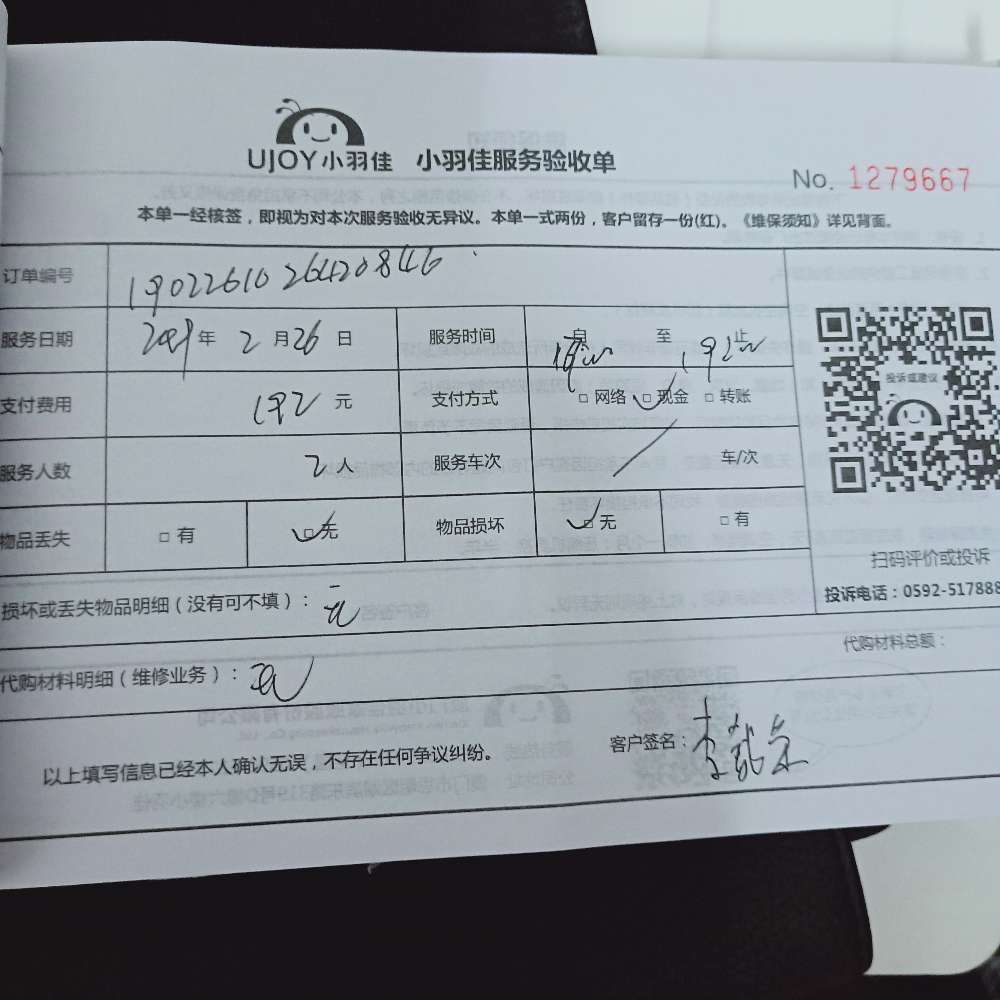 UJOY小羽佳 小羽佳服务验收单
No. 1279667
本单一经核签，即视为对本次服务验收无异议。本单一式两份，客户留存一份(红)。《维保须知》详见背面。
订单编号 1902261026420846
服务日期 2019年 2月26日 服务时间 自 至 止
支付费用 192 元 支付方式 □ 网络 □ 现金 □ 转账
服务人数 2人 服务车次 车/次
物品丢失 □ 有 □ 无 物品损坏 □ 无 □ 有
投诉或建议
扫码评价或投诉
投诉电话：0592-517888
损坏或丢失物品明细（没有可不填）：无
代购材料明细（维修业务）：无 代购材料总额：
以上填写信息已经本人确认无误，不存在任何争议纠纷。 客户签名：李